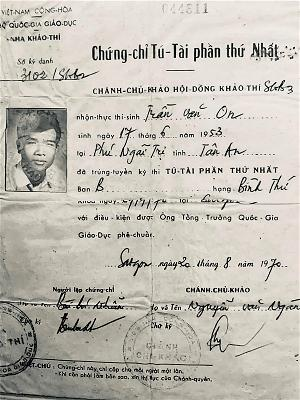 VIỆT-NAM CỘNG-HÒA
BỘ QUỐC-GIA GIÁO-DỤC
NHA KHẢO-THÍ
Số ký danh
3102/
044811
Chứng-chỉ Tú-Tài phần thứ Nhất
CHÁNH-CHỦ-KHẢO HỘI-ĐỒNG KHẢO-THÍ
nhận-thực thí-sinh Trần văn On
sinh ngày 17 th 6 n 1953
tại Phú Ngãi Trị tỉnh Tân An
đã trúng-tuyển kỳ thi TÚ-TÀI PHẦN THỨ NHẤT
Ban B hạng Bình Thứ
khóa ngày tại
với điều-kiện được Ông Tổng-Trưởng Quốc-Gia
Giáo-Dục phê-chuẩn.
Saigon ngày 20 tháng 8 năm 1970
Người lập chứng-chỉ
CHÁNH-CHỦ-KHẢO
Họ và Tên Nguyễn văn
Ký
CHÁNH
CHỦ-KHẢO
CHÚ: - Chứng-chỉ này chỉ cấp cho mỗi người một lần.
- Khi cần phải làm bản sao, xin thị thực của Chánh-quyền.